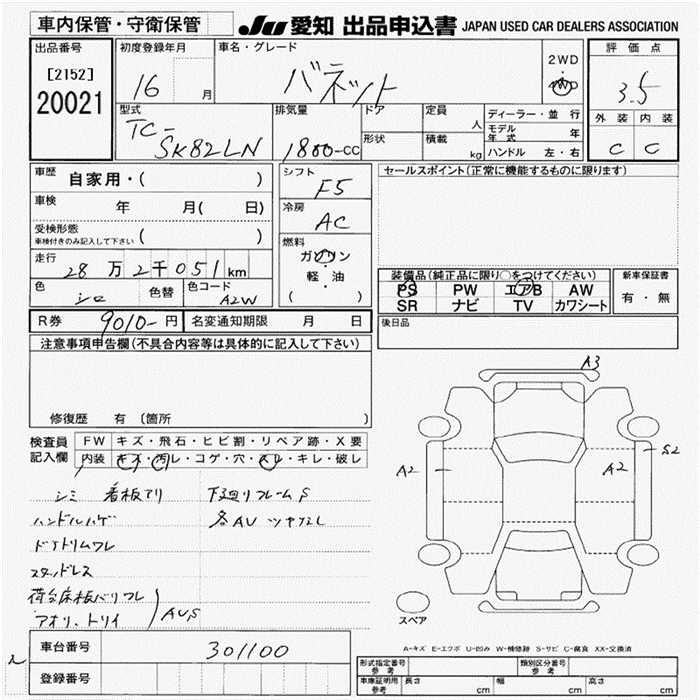 車内保管・守衛保管
JU 愛知 出品申込書 JAPAN USED CAR DEALERS ASSOCIATION
出品番号
[2152]
20021
初度登録年月
16 月
車名・グレード
バネット
2WD
4WD
評価点
3.5
外装 内装
C C
型式
TC-
SK82LN
排気量
1800-CC
ドア
形状
定員
人
積載
kg
ディーラー・並行
モデル年式 年
ハンドル 左・右
車歴 自家用・( )
車検 年 月( 日)
受検形態
車検付きのみ記入して下さい ( )
走行 28万2千051km
色 シロ 色替 色コード A2W
シフト
F5
冷房
AC
燃料
ガソリン
軽・油
( )
セールスポイント(正常に機能するものに限ります)
装備品(純正品に限り○をつけてください)
PS PW エアB AW
SR ナビ TV カワシート
新車保証書
有・無
R券 9010-円 名変通知期限 月 日
後日品
注意事項申告欄(不具合内容等は具体的に記入して下さい)
修復歴 有 (箇所 )
検査員
記入欄
FW キズ・飛石・ヒビ割・リペア跡・X要
内装 キズ・汚レ・コゲ・穴・スレ・キレ・破レ
シミ 看板アリ 下廻りフレームS
ハンドルハゲ
各AU
ドアトリムワレ
スタッドレス
荷台床板バリワレ
AUS
A3
A2
A2
S2
スペア
A-キズ E-エクボ U-凹み W-補修跡 S-サビ C-腐食 XX-交換済
車台番号 301100
登録番号
型式指定番号
参考
類別区分番号
参考
車庫証明用
参考
長さ cm 幅 cm 高さ cm